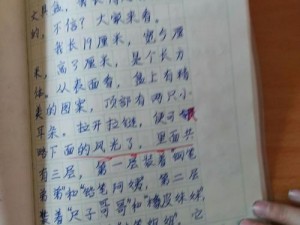 文具盒，我长得
的，不信？大家来看。
我长19厘米，宽9厘
米，高7厘米，是个长方
体。从表面看，盒上有精
美的图案，顶部有两只小
耳朵。拉开拉链，便可领
略下面的风光了，里面共
有三层，第一层装着“钢笔
弟弟”和“铅笔阿姨”，第二层
装着“尺子哥哥”和“橡皮妹妹，
它